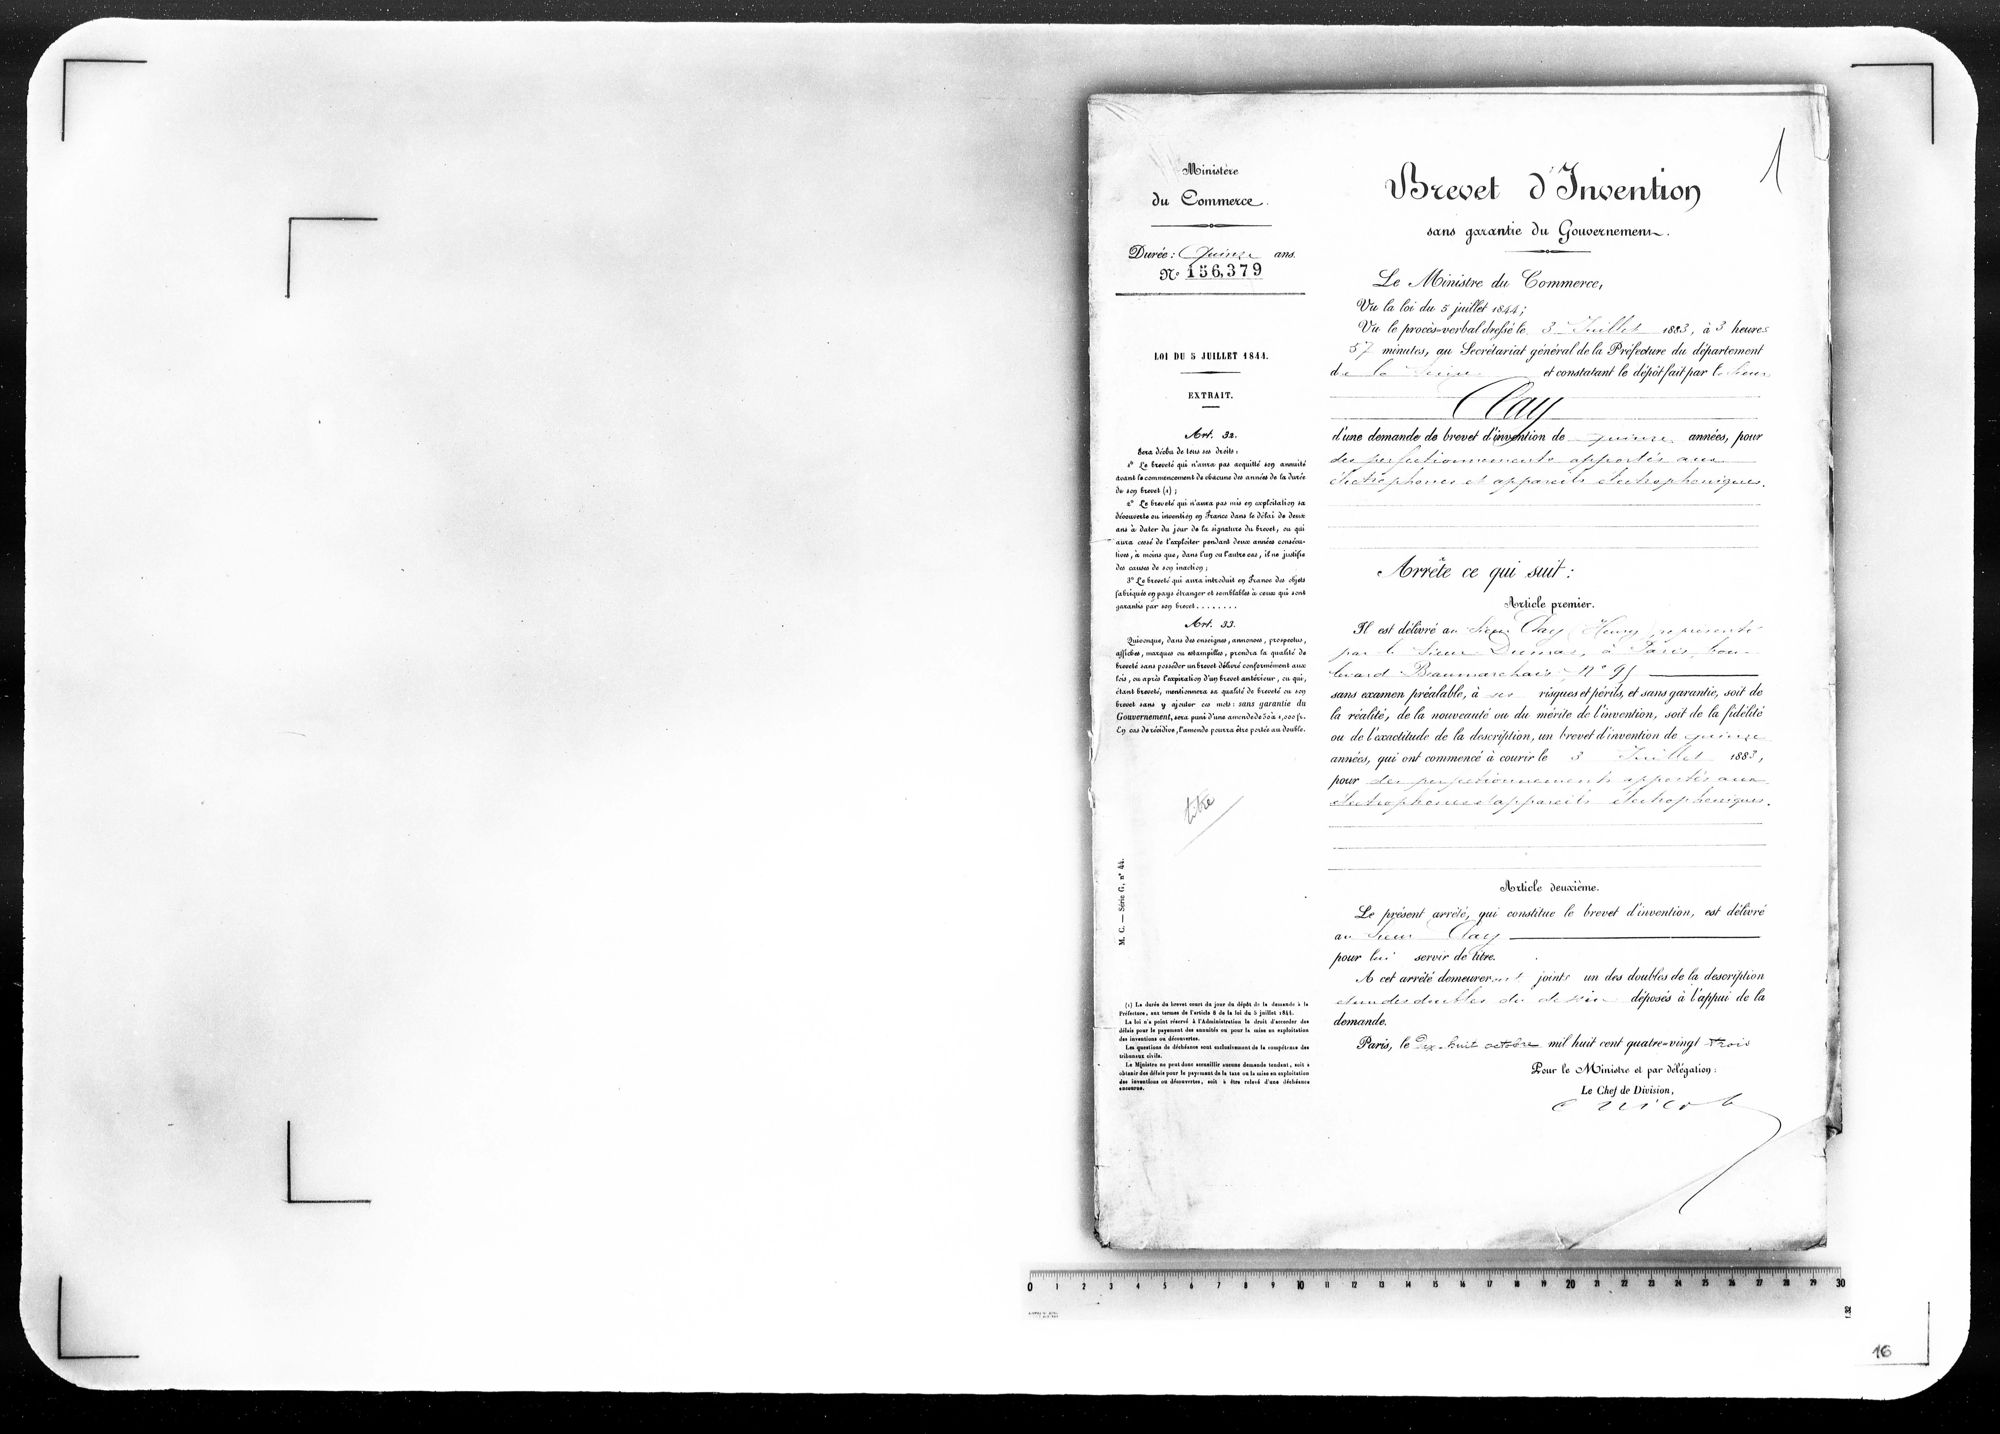 Ministère
du Commerce.
Durée : Quinze ans.
N° 156,379
LOI DU 5 JUILLET 1844.
EXTRAIT.
Art. 32.
Sera déchu de tous ses droits :
1° Le breveté qui n'aura pas acquitté son annuité
avant le commencement de chacune des années de la durée
de son brevet (1) ;
2° Le breveté qui n'aura pas mis en exploitation sa
découverte ou invention en France dans le délai de deux
ans à dater du jour de la signature du brevet, ou qui
aura cessé de l'exploiter pendant deux années consécu-
tives, à moins que, dans l'un ou l'autre cas, il ne justifie
des causes de son inaction ;
3° Le breveté qui aura introduit en France des objets
fabriqués en pays étranger et semblables à ceux qui sont
garantis par son brevet........
Art. 33.
Quiconque, dans des enseignes, annonces, prospectus,
affiches, marques ou estampilles, prendra la qualité de
breveté sans posséder un brevet délivré conformément aux
lois, ou après l'expiration d'un brevet antérieur, ou qui,
étant breveté, mentionnera sa qualité de breveté ou son
brevet sans y ajouter ces mots : sans garantie du
Gouvernement, sera puni d'une amende de 50 à 1,000 fr.
En cas de récidive, l'amende pourra être portée au double.
titre
M. C. — Série G, n° 44.
(1) La durée du brevet court du jour du dépôt de la demande à la
Préfecture, aux termes de l'article 8 de la loi du 5 juillet 1844.
La loi n'a point réservé à l'Administration le droit d'accorder des
délais pour le payement des annuités ou pour la mise en exploitation
des inventions ou découvertes.
Les questions de déchéance sont exclusivement de la compétence des
tribunaux civils.
Le Ministre ne peut donc accueillir aucune demande tendant, soit à
obtenir des délais pour le payement de la taxe ou la mise en exploitation
des inventions ou découvertes, soit à être relevé d'une déchéance
encourue.
1
Brevet d'Invention
sans garantie du Gouvernement.
Le Ministre du Commerce,
Vu la loi du 5 juillet 1844;
Vu le procès-verbal dressé le 3 Juillet 1883, à 3 heures
57 minutes, au Secrétariat général de la Préfecture du département
de la Seine et constatant le dépôt fait par le Sieur
Clay
d'une demande de brevet d'invention de quinze années, pour
des perfectionnements apportés aux
électrophones et appareils électrophoniques.
Arrête ce qui suit :
Article premier.
Il est délivré au Sieur Clay (Henry) représenté
par le Sieur Dumas, à Paris, bou-
levard Beaumarchais, N° 95
sans examen préalable, à ses risques et périls, et sans garantie, soit de
la réalité, de la nouveauté ou du mérite de l'invention, soit de la fidélité
ou de l'exactitude de la description, un brevet d'invention de quinze
années, qui ont commencé à courir le 3 Juillet 1883,
pour des perfectionnements apportés aux
électrophones et appareils électrophoniques.
Article deuxième.
Le présent arrêté, qui constitue le brevet d'invention, est délivré
au Sieur Clay
pour lui servir de titre.
A cet arrêté demeureront joints un des doubles de la description
et un des doubles du dessin déposés à l'appui de la
demande.
Paris, le Dix-huit octobre mil huit cent quatre-vingt trois
Pour le Ministre et par délégation :
Le Chef de Division,
0 1 2 3 4 5 6 7 8 9 10 11 12 13 14 15 16 17 18 19 20 21 22 23 24 25 26 27 28 29 30
16